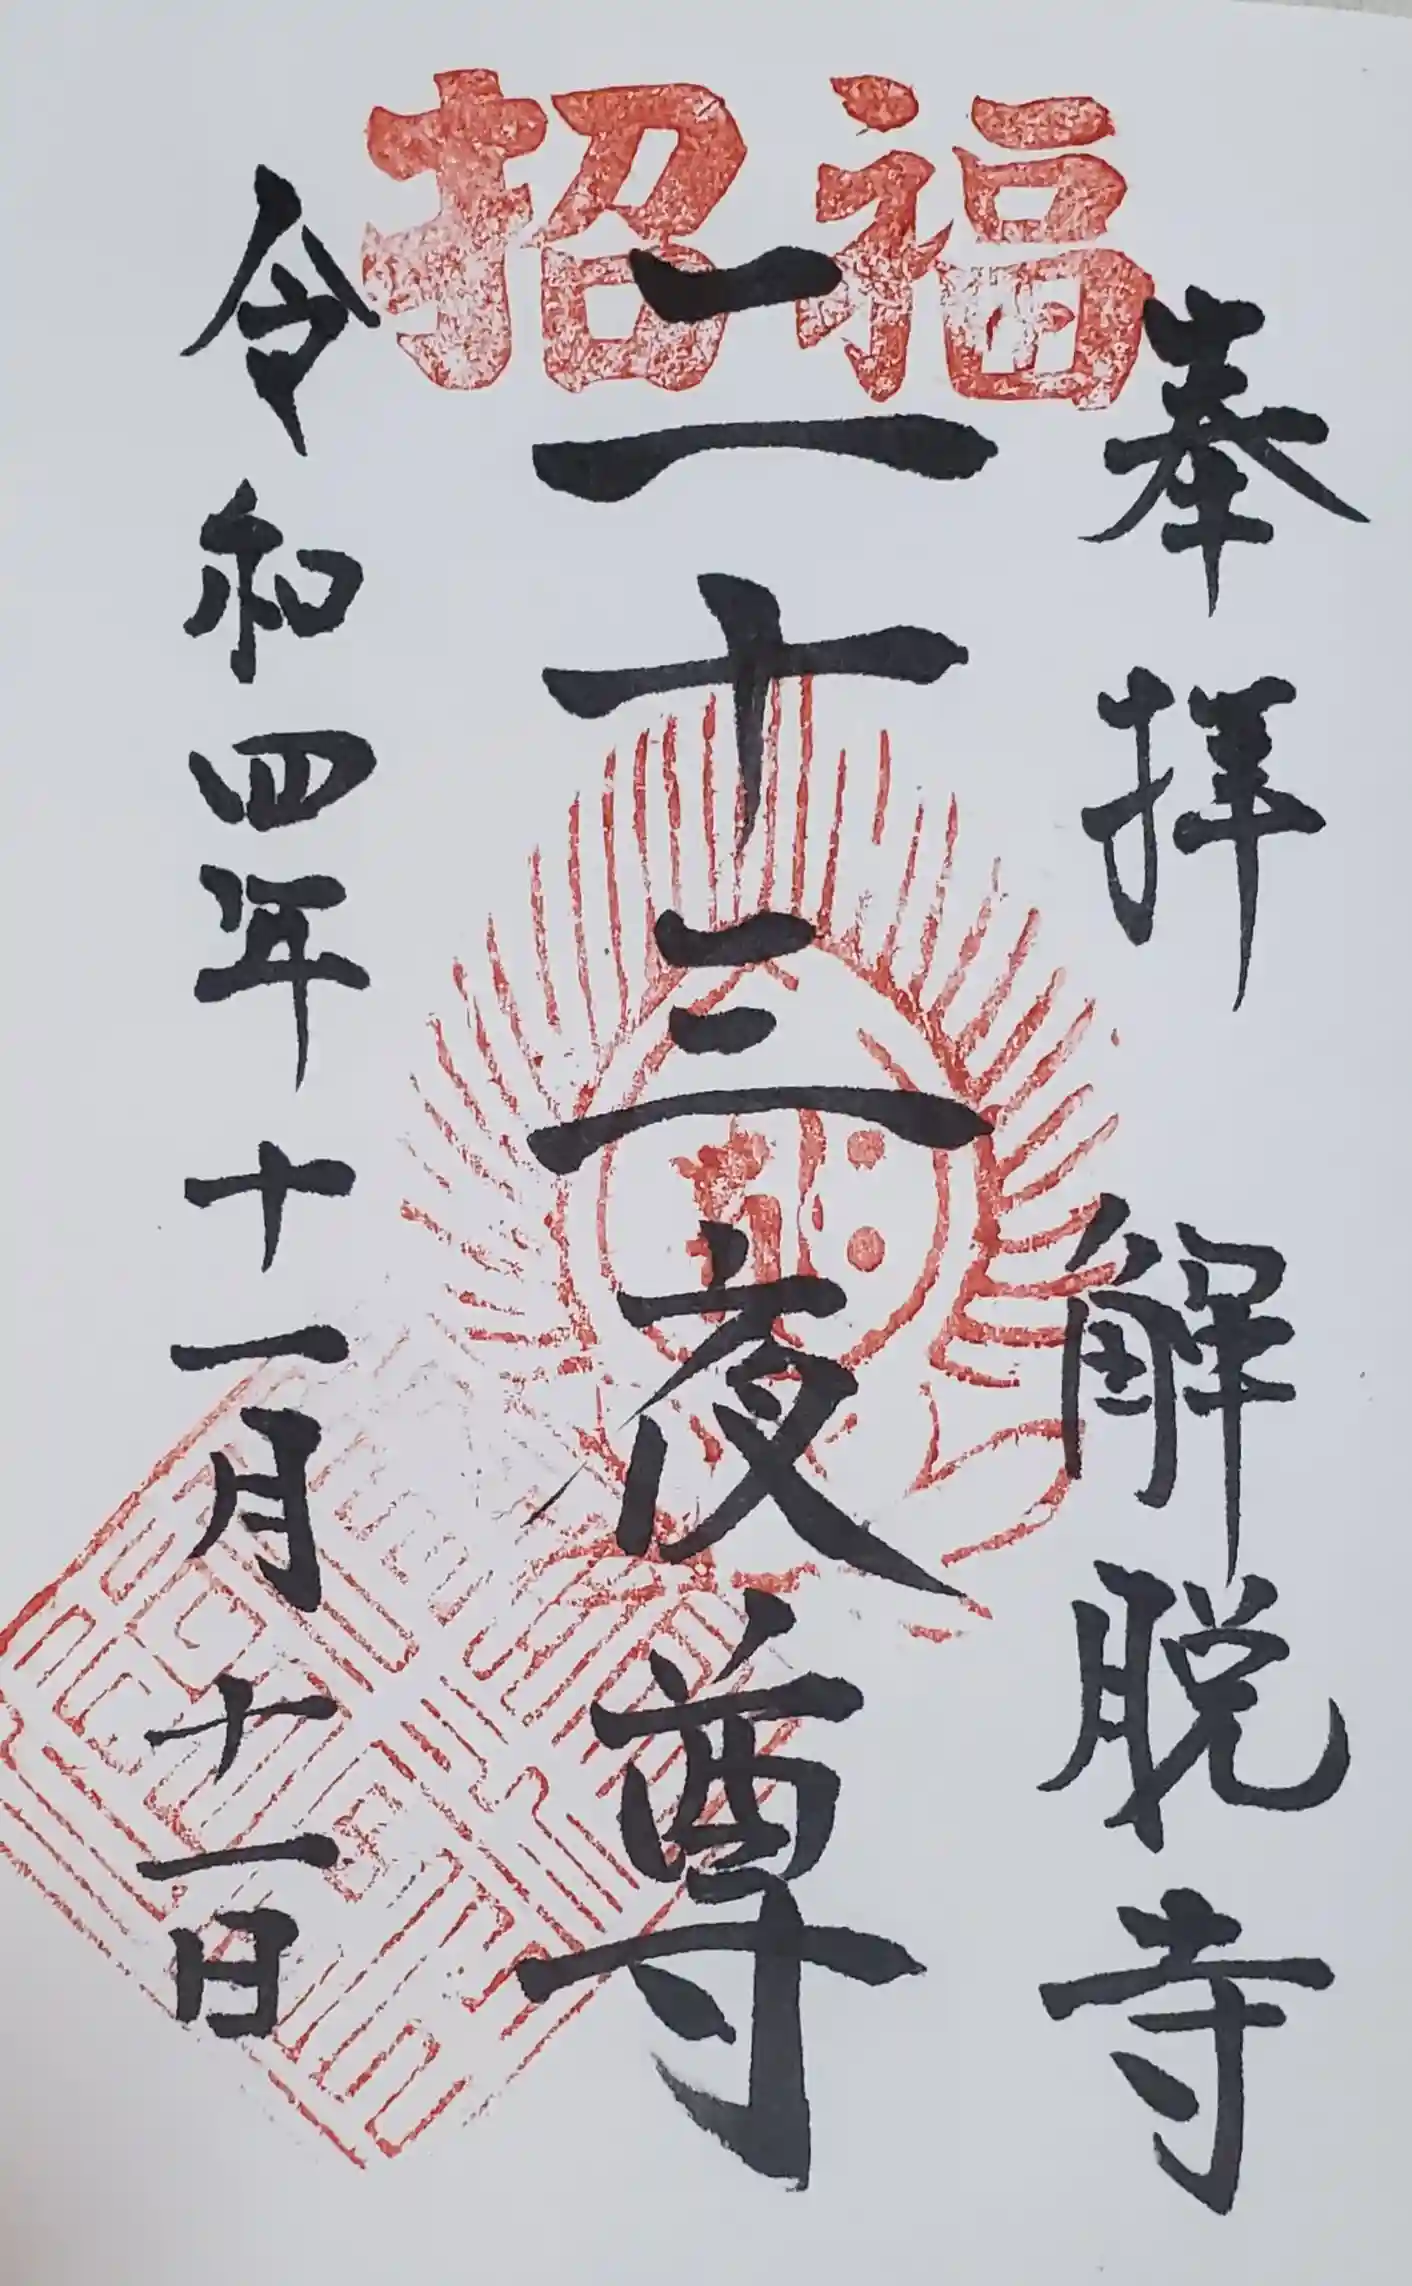 奉拝 解脱寺
二十三夜尊
令和四年十一月十一日
招福